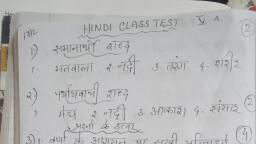 17/12 HINDI CLASS TEST V A.
1) समानार्थी शब्द (2)
1. मतवाला 2. नदी 3. तरंग 4. शरीर
2) पर्यायवाची शब्द
1. मेघ 2. नदी 3. आकाश 4. संसार (2)
प्रश्नों के उत्तर
3) 1. वर्षा के आगमन पर (4)